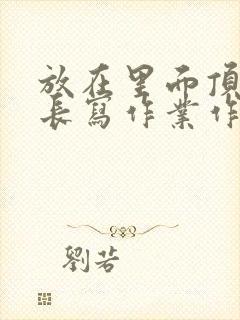 放在里而頂
長寫作業作
劉若